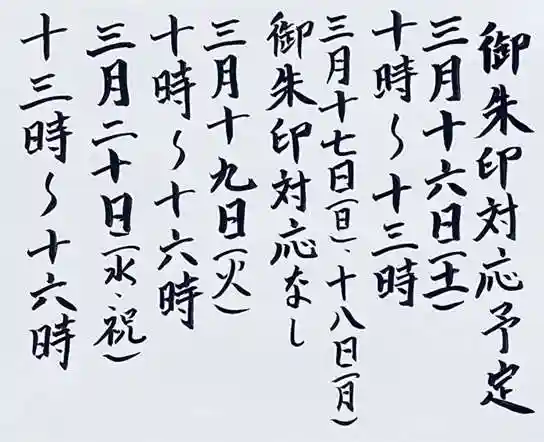 御朱印対応予定
三月十六日(土)
十時～十三時
三月十七日(日)、十八日(月)
御朱印対応なし
三月十九日(火)
十時～十六時
三月二十日(水、祝)
十三時～十六時